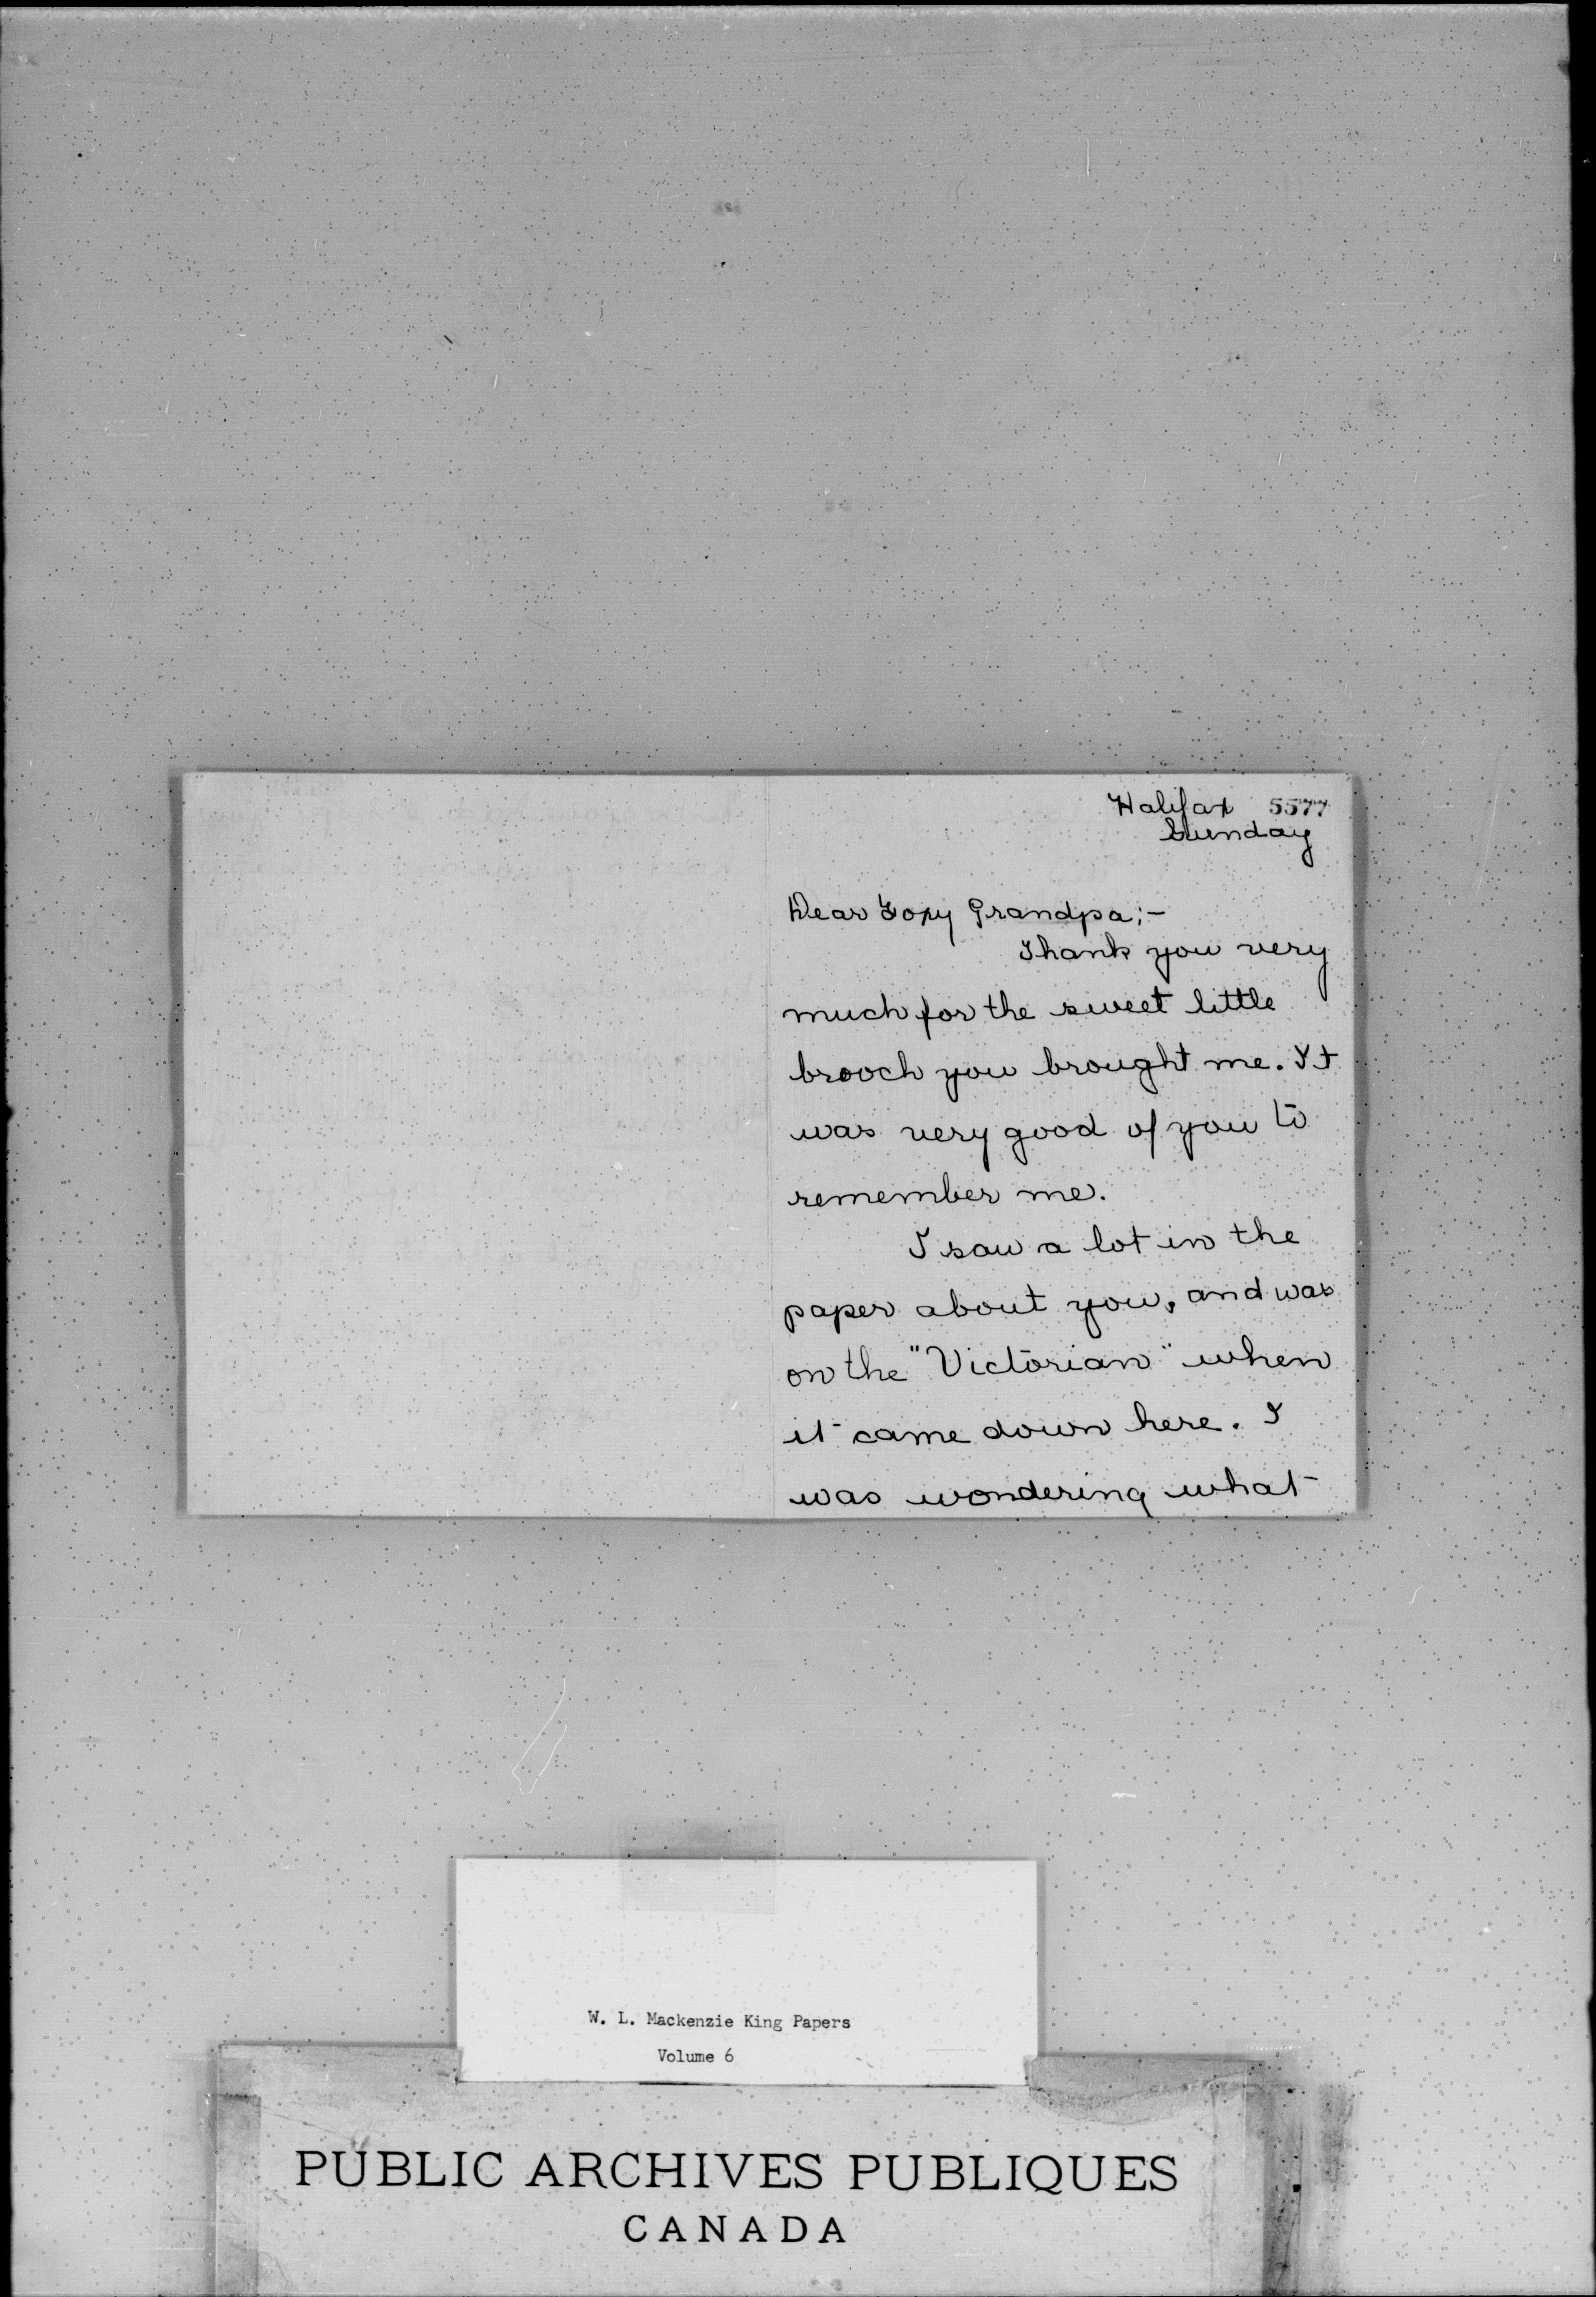 Halifax 5577
Sunday
Dear Foxy Grandpa;—
Thank you very
much for the sweet little
brooch you brought me. It
was very good of you to
remember me.
I saw a lot in the
paper about you, and was
on the "Victorian" when
it came down here. I
was wondering what
W. L. Mackenzie King Papers
Volume 6
PUBLIC ARCHIVES PUBLIQUES
CANADA